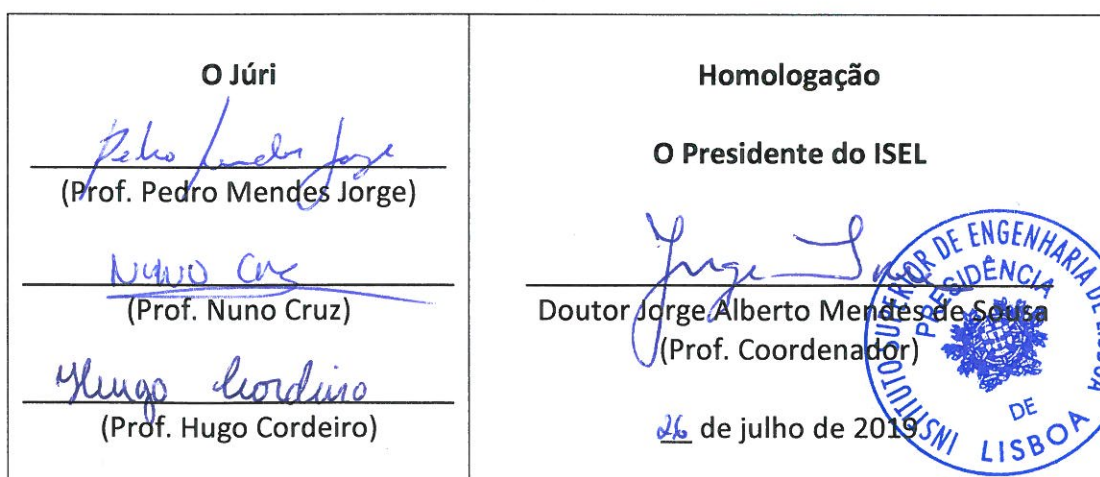 O Júri
Pedro Mendes Jorge
(Prof. Pedro Mendes Jorge)
Nuno Cruz
(Prof. Nuno Cruz)
Hugo Cordeiro
(Prof. Hugo Cordeiro)
Homologação
O Presidente do ISEL
Jorge
Doutor Jorge Alberto Mendes de Sousa
(Prof. Coordenador)
26 de julho de 2019
INSTITUTO SUPERIOR DE ENGENHARIA DE LISBOA
PRESIDÊNCIA
DE
LISBOA